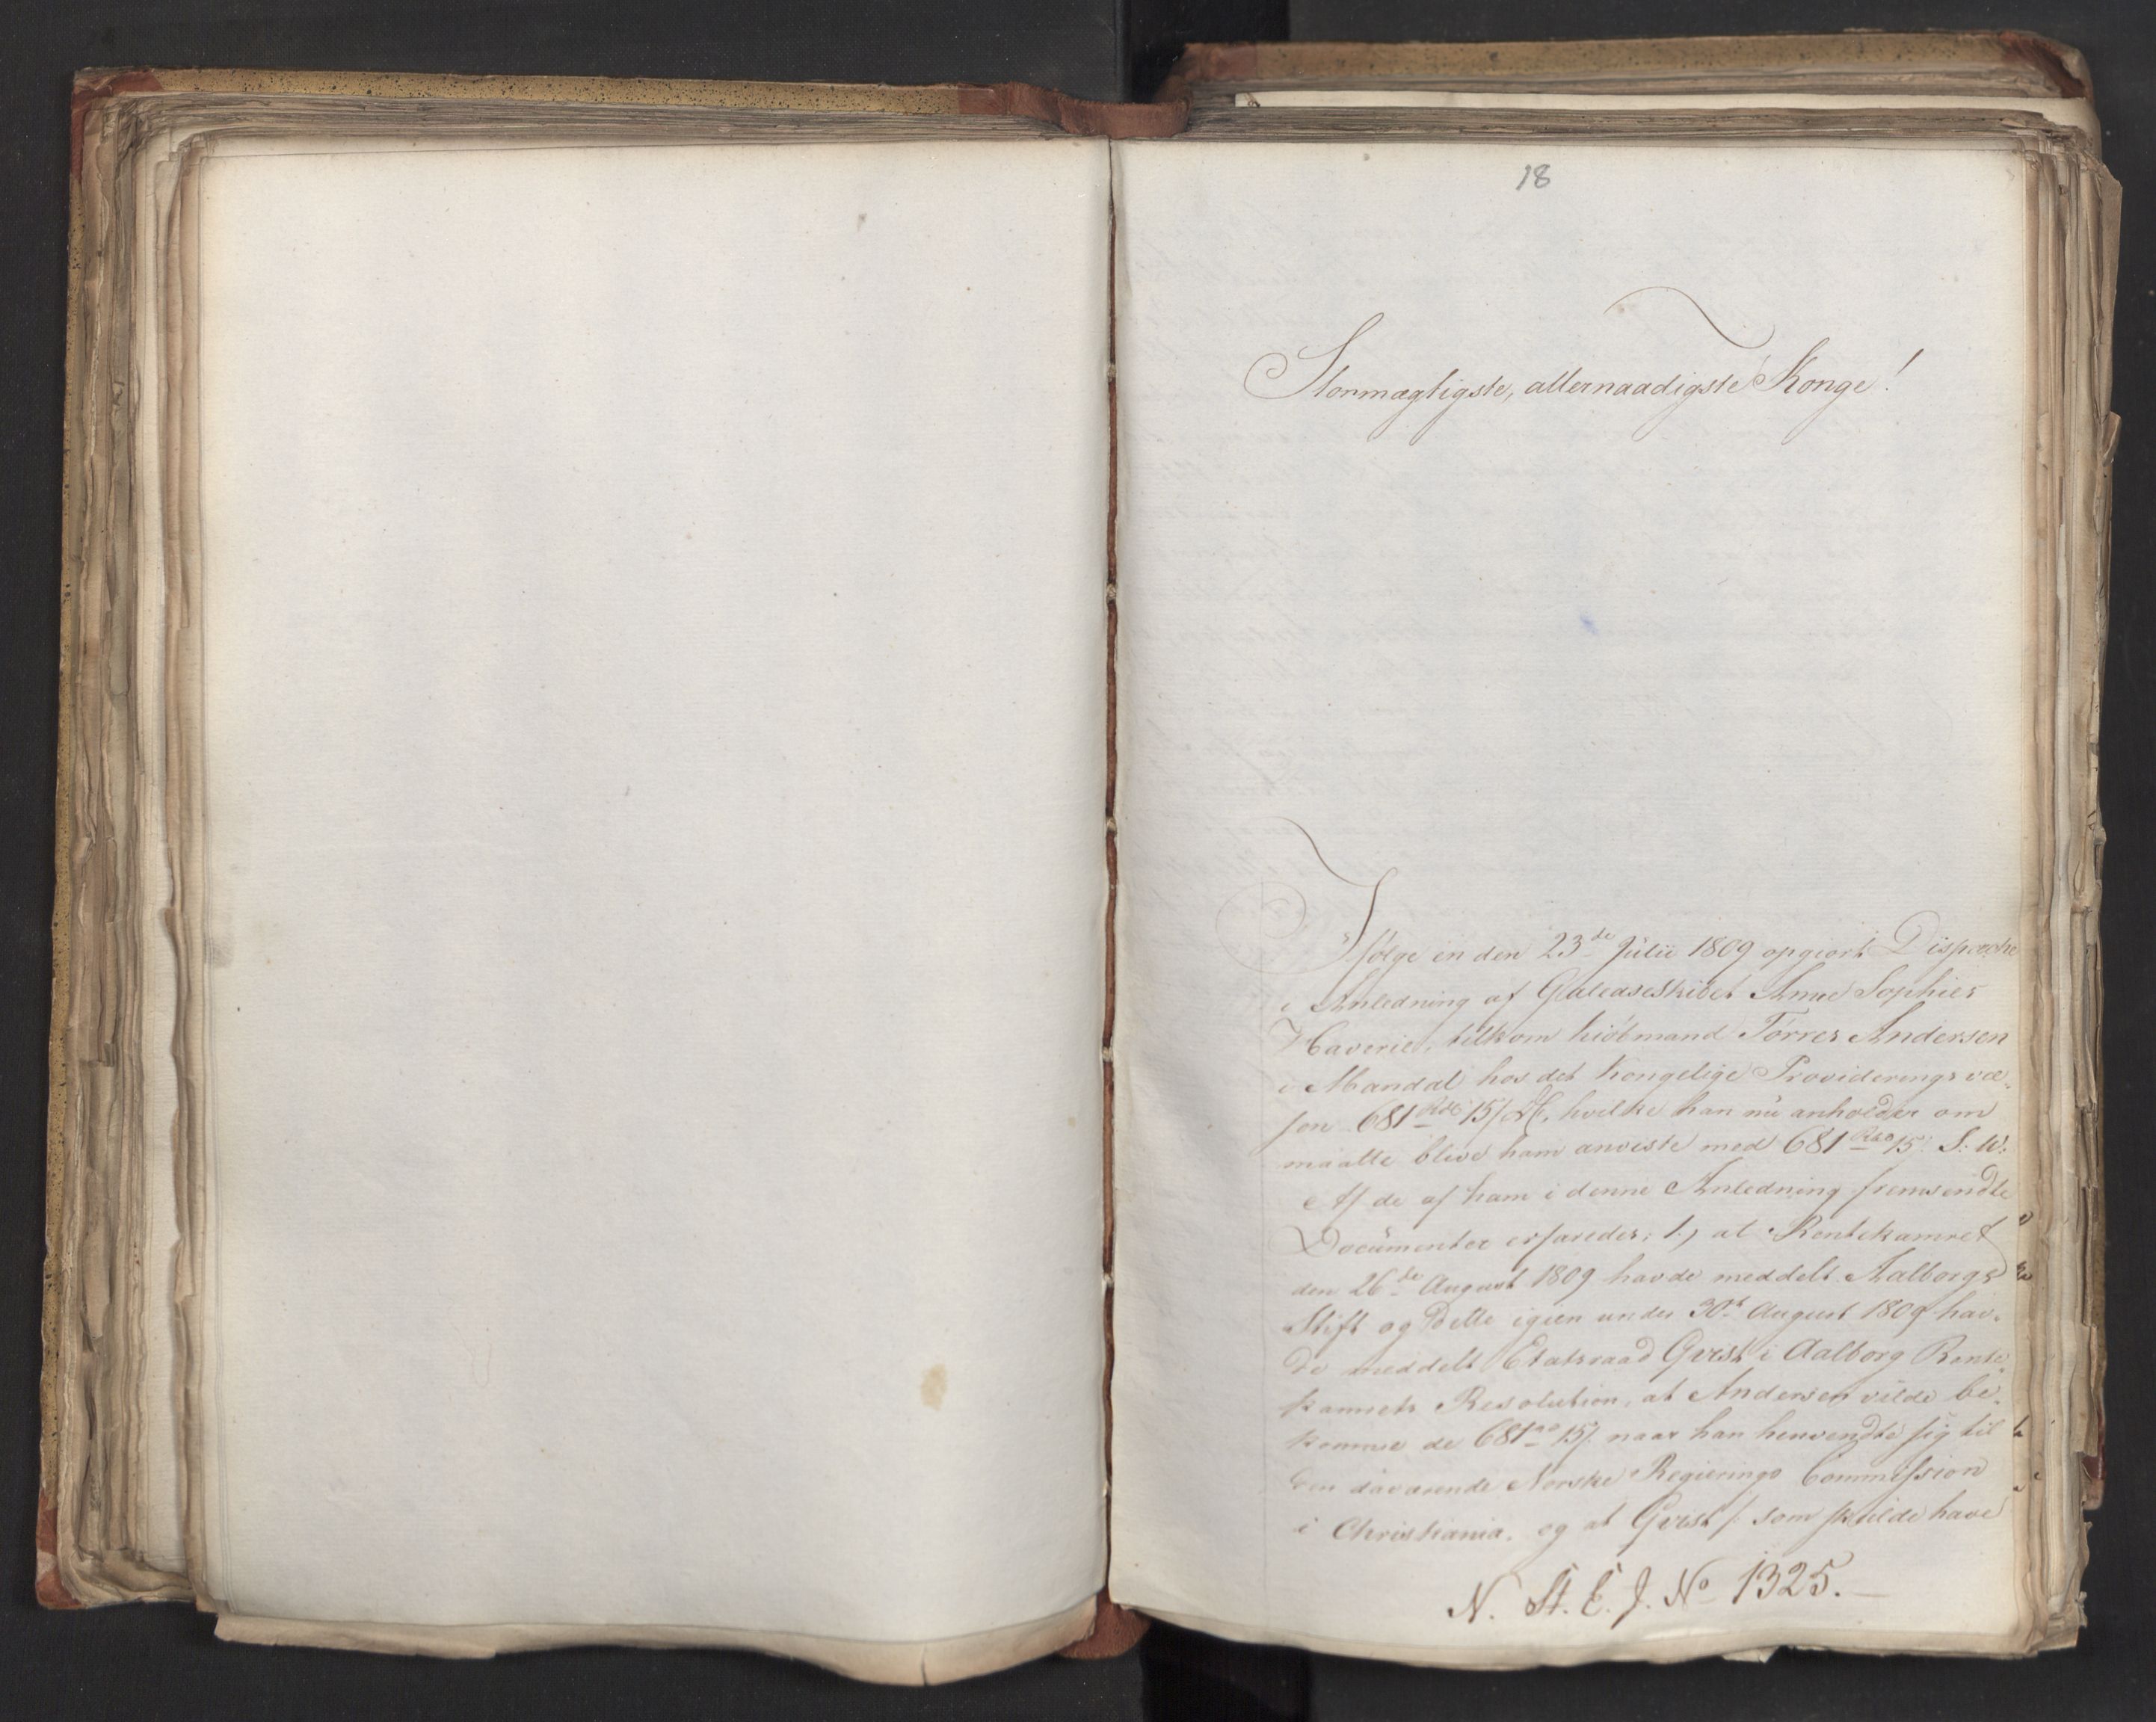 18
Stormægtigste, allernaadigste Konge!
Ifølge en den 23de Julii 1809 opgiort Dispache
i Anledning af Galeaseskibet Anne Sophies
Haverie, tilkom Kiøbmand Torres Andersen
i Mandal hos det kongelige Provideringsvæ-
sen 681 Rdr 15 s, hvilke han nu anholder om
maatte blive ham anviste med 681 Rdr 15 S: W:
Af de af ham i denne Anledning fremsendte
Documenter erfaredes; 1, at Rentekamret
den 26de August 1809 havde meddelt Aalborgs
Stift og dette igien under 30t August 1809 hav-
de meddelt Etatsraad Qvist i Aalborg Rente-
kamrets Resolution, at Andersen vilde be-
komme de 681 rd 15 s naar han henvendte sig til
den daværende Norske Regierings Commission
i Christiania, og at Qvist /: som skulde have
N. St. E. J. No 1325.